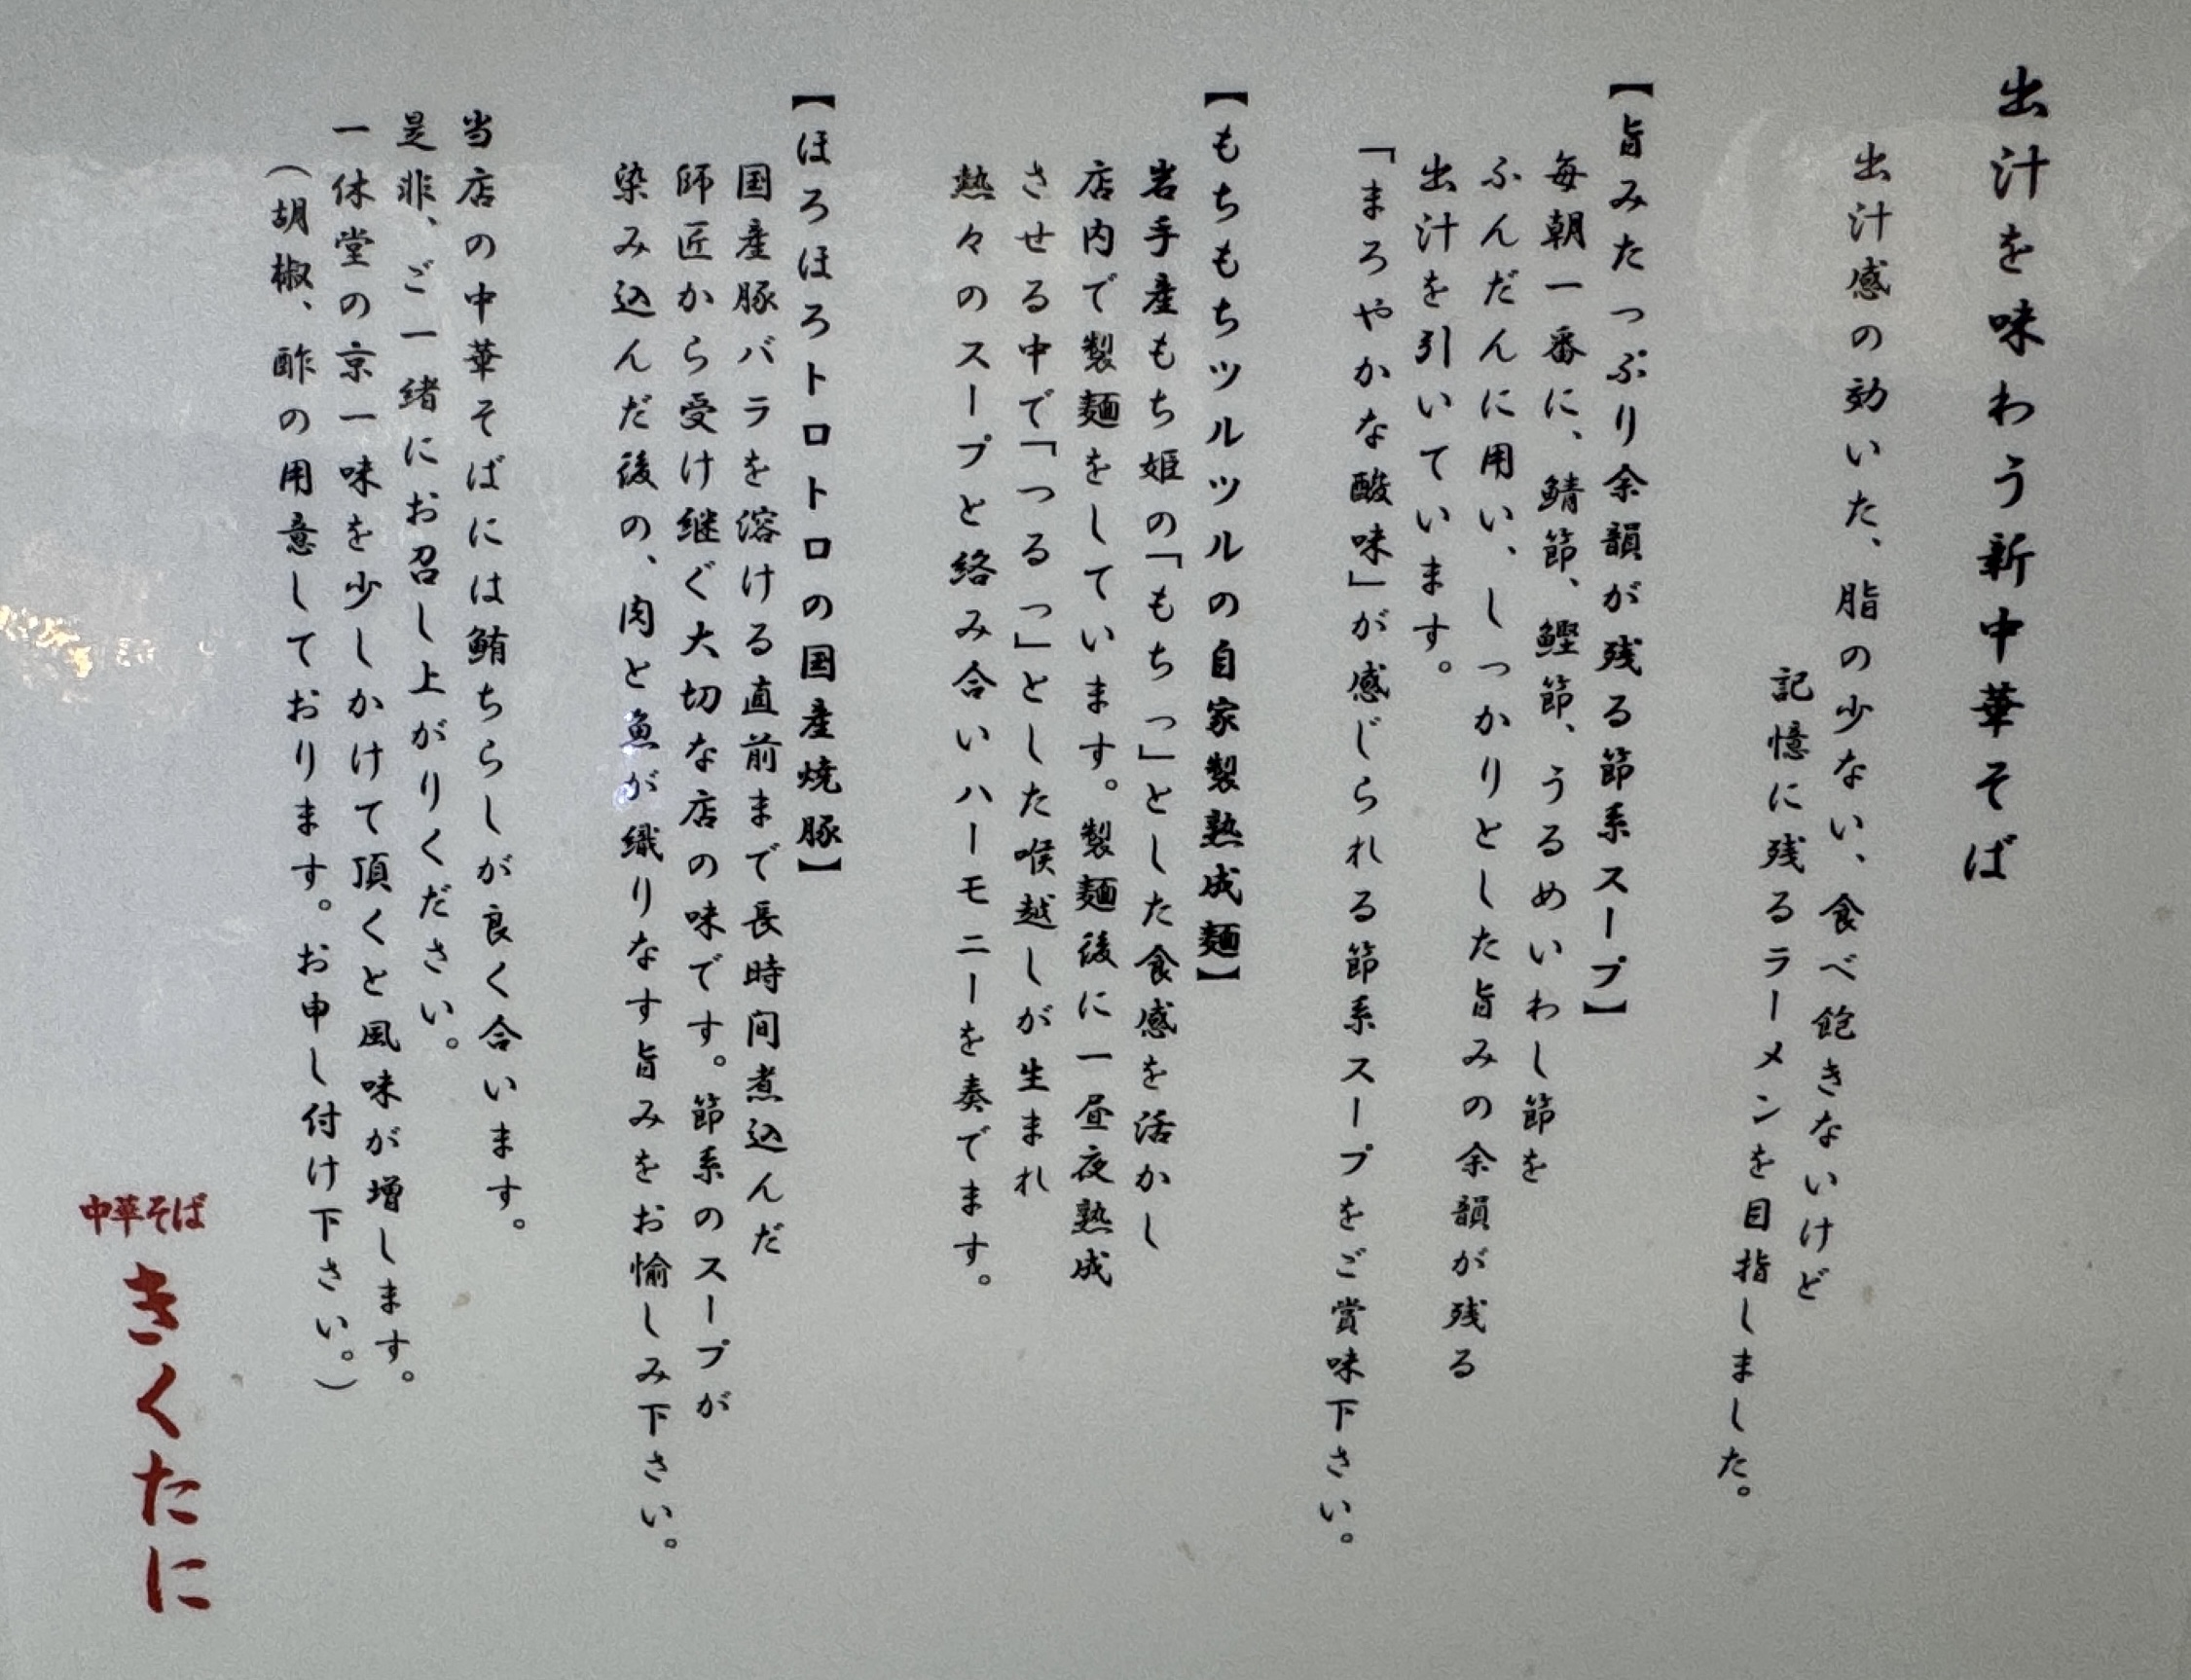 出汁を味わう新中華そば
出汁感の効いた、脂の少ない、食べ飽きないけど
記憶に残るラーメンを目指しました。
【旨みたっぷり余韻が残る節系スープ】
毎朝一番に、鯖節、鰹節、うるめいわし節を
ふんだんに用い、しっかりとした旨みの余韻が残る
出汁を引いています。
「まろやかな酸味」が感じられる節系スープをご賞味下さい。
【もちもちツルツルの自家製熟成麺】
岩手産もち姫の「もちっ」とした食感を活かし
店内で製麺をしています。製麺後に一昼夜熟成
させる中で「つるっ」とした喉越しが生まれ
熱々のスープと絡み合いハーモニーを奏でます。
【ほろほろトロトロの国産焼豚】
国産豚バラを溶ける直前まで長時間煮込んだ
師匠から受け継ぐ大切な店の味です。節系のスープが
染み込んだ後の、肉と魚が織りなす旨みをお愉しみ下さい。
当店の中華そばには鮪ちらしが良く合います。
是非、ご一緒にお召し上がりください。
一休堂の京一味を少しかけて頂くと風味が増します。
（胡椒、酢の用意しております。お申し付け下さい。）
中華そば
きくたに